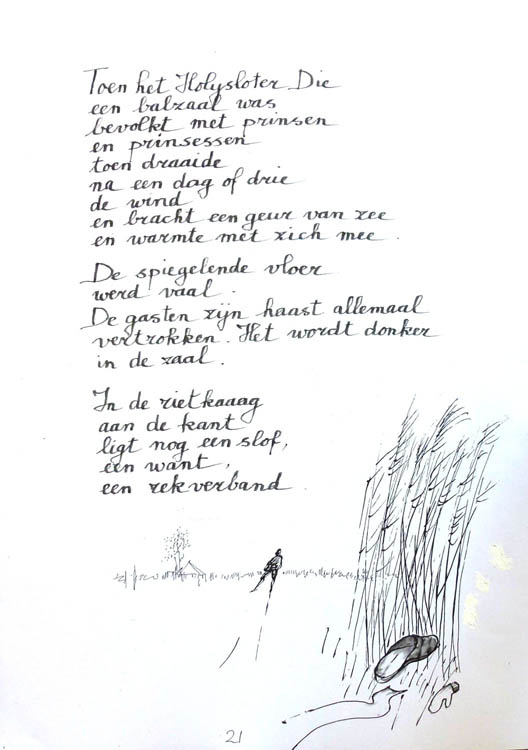 Toen het Holysloter Die
een balzaal was
bevolkt met prinsen
en prinsessen
toen draaide
na een dag of drie
de wind
en bracht een geur van zee
en warmte met zich mee.
De spiegelende vloer
werd vaal.
De gasten zijn haast allemaal
vertrokken. Het wordt donker
in de zaal.
In de rietkaaag
aan de kant
ligt nog een slof,
een want,
een rekverband
21